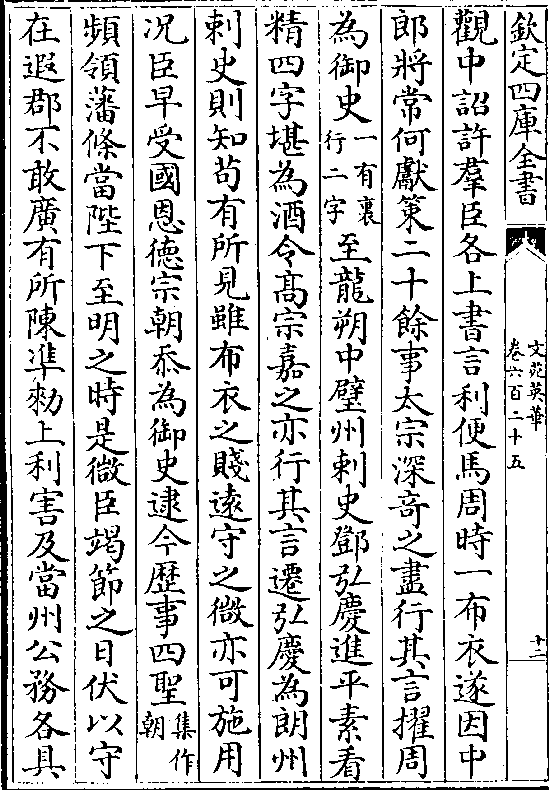 欽定四庫全書
文苑英華
卷六百二十五
十二
觀中詔許羣臣各上書言利便馬周時一布衣遂因中
郎將常何獻策二十餘事太宗深竒之盡行其言擢周
為御史一有裏行二字至龍朔中壁州刺史鄧弘慶進平素看
精四字堪為酒令髙宗嘉之亦行其言遷弘慶為朗州
刺史則知苟有所見雖布衣之賤逺守之微亦可施用
况臣早受國恩德宗朝忝為御史逮今歴事四聖集作朝
頻領藩條當陛下至明之時是微臣竭節之日伏以守
在遐郡不敢廣有所陳凖勑上利害及當州公務各具